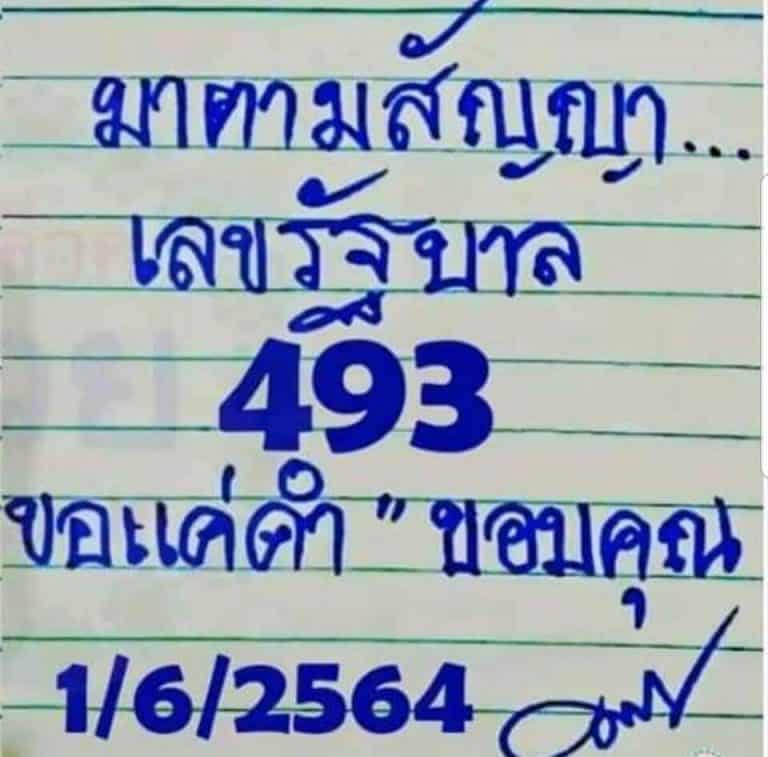 มาตามสัญญา...
เลขรัฐบาล
493
ขอแค่คำ " ขอบคุณ
1/6/2564